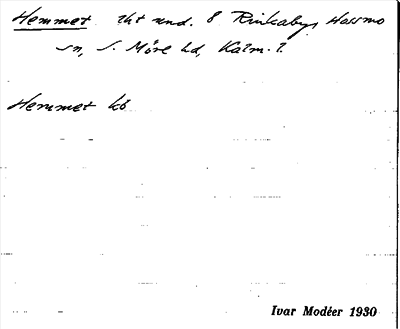 Hemmet tht und. 8 Rinkaby, Hossmo
sn, S. Möre hd, Kalm. l.
Hemmet kb
Ivar Modéer 1930